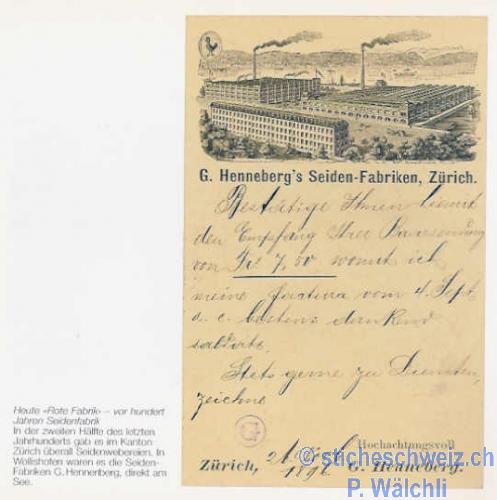 G. Henneberg's Seiden-Fabriken, Zürich.
Bestätige Ihnen hiemit
den Empfang Ihrer Baarsendung
von Frs 7,50 womit ich
meine Factura vom 4. Sept
a. c. bestens dankend
saldirte.
Stets gerne zu Diensten,
zeichne
Hochachtungsvoll
Zürich, 1896 G. Henneberg.
Heute «Rote Fabrik» – vor hundert
Jahren Seidenfabrik
In der zweiten Hälfte des letzten
Jahrhunderts gab es im Kanton
Zürich überall Seidenwebereien. In
Wollishofen waren es die Seiden-
Fabriken G. Hennerberg, direkt am
See.
© sticheschweiz.ch
P. Wälchli